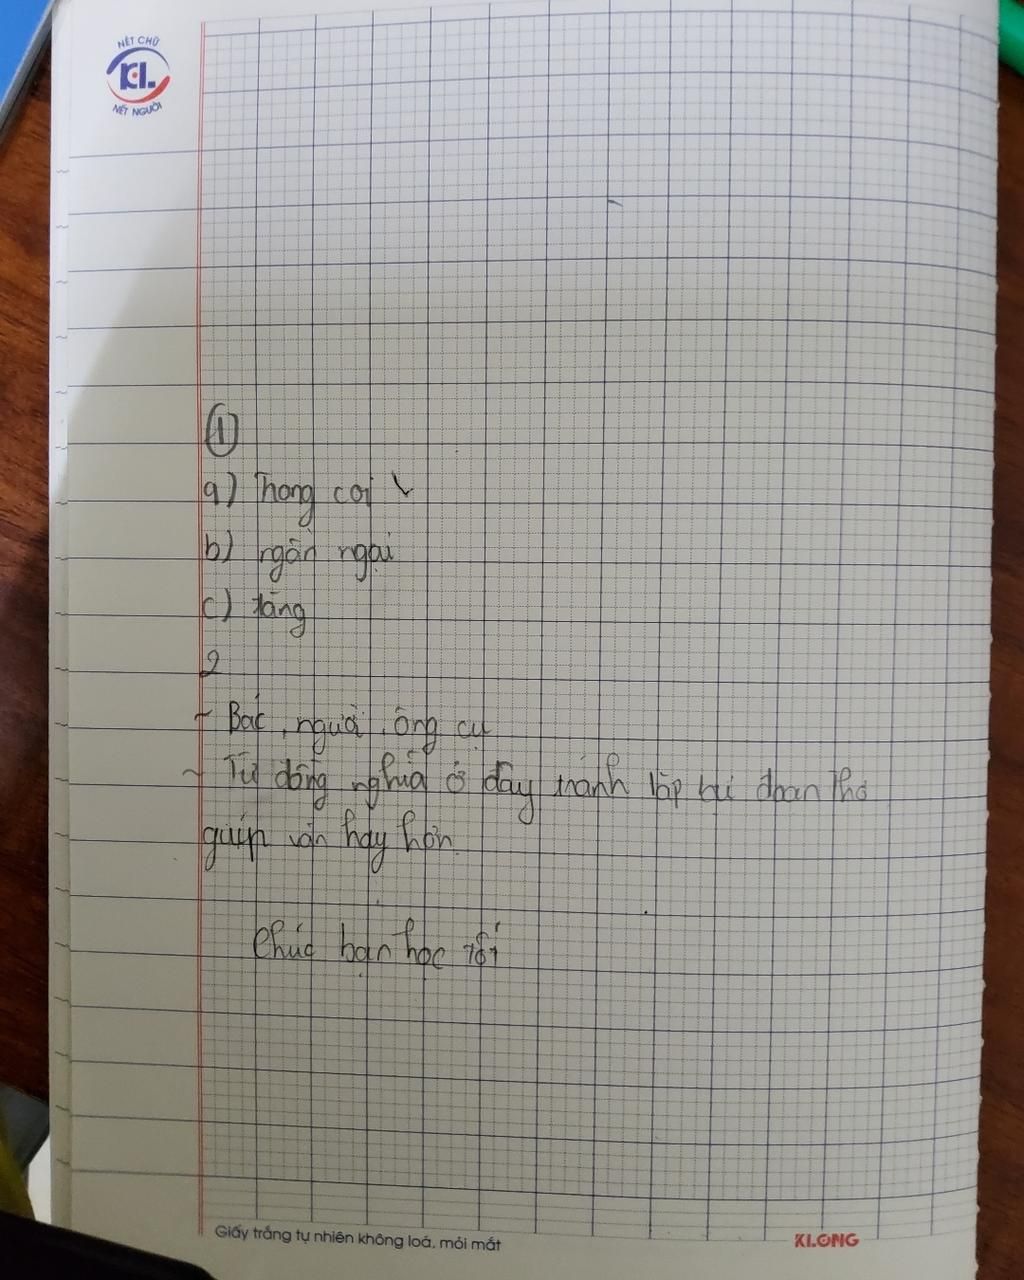 NÉT CHỮ
KL
NÉT NGƯỜI
①
a) Trong coi
b) ngăn ngại
c) tăng
2
- Bác, người, ông cụ
- Từ đồng nghĩa ở đây tránh lặp từ đoạn thơ
giúp văn hay hơn
Chúc bạn học tốt
Giấy trắng tự nhiên không loá, mỏi mắt
KLONG